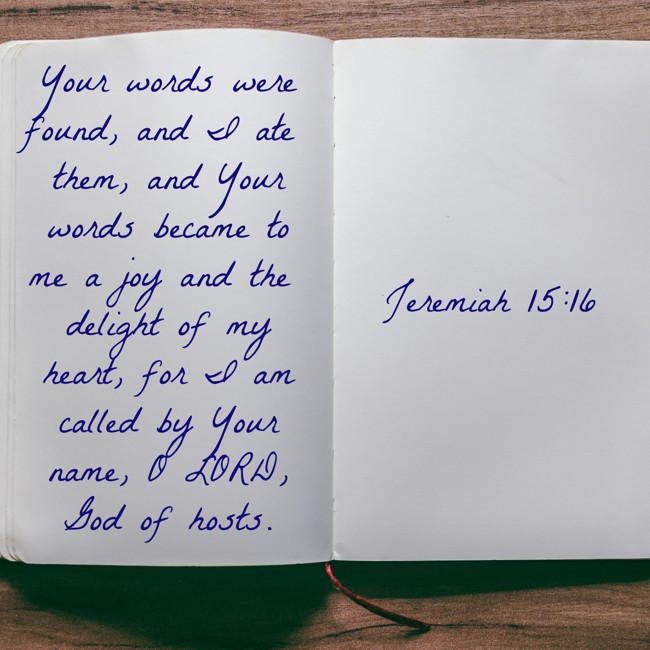 Your words were
found, and I ate
them, and Your
words became to
me a joy and the
delight of my
heart, for I am
called by Your
name, O LORD,
God of hosts.
Jeremiah 15:16